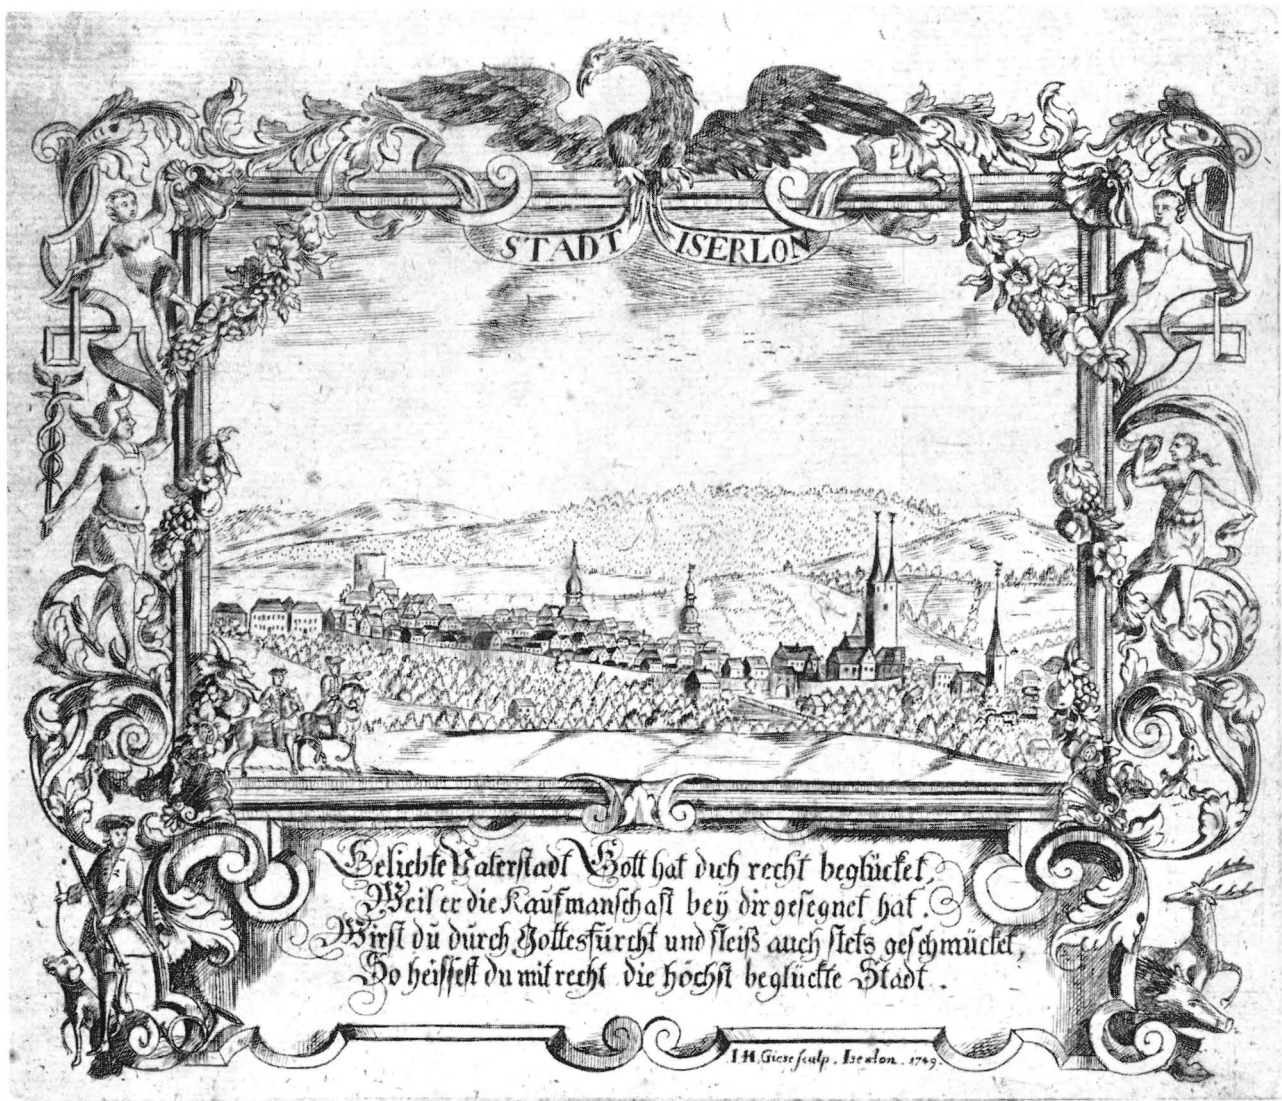 STADT ISERLON
Geliebte Vaterstadt Gott hat dich recht beglücket,
Weil er die Kaufmanschaft beÿ dir gesegnet hat.
Wirst dü dürch Gottesfürcht und fleiß auch stets geschmücket,
So heissest du mit recht die höchst beglückte Stadt.
I.H. Giese sculp. Iserlon. 1749.